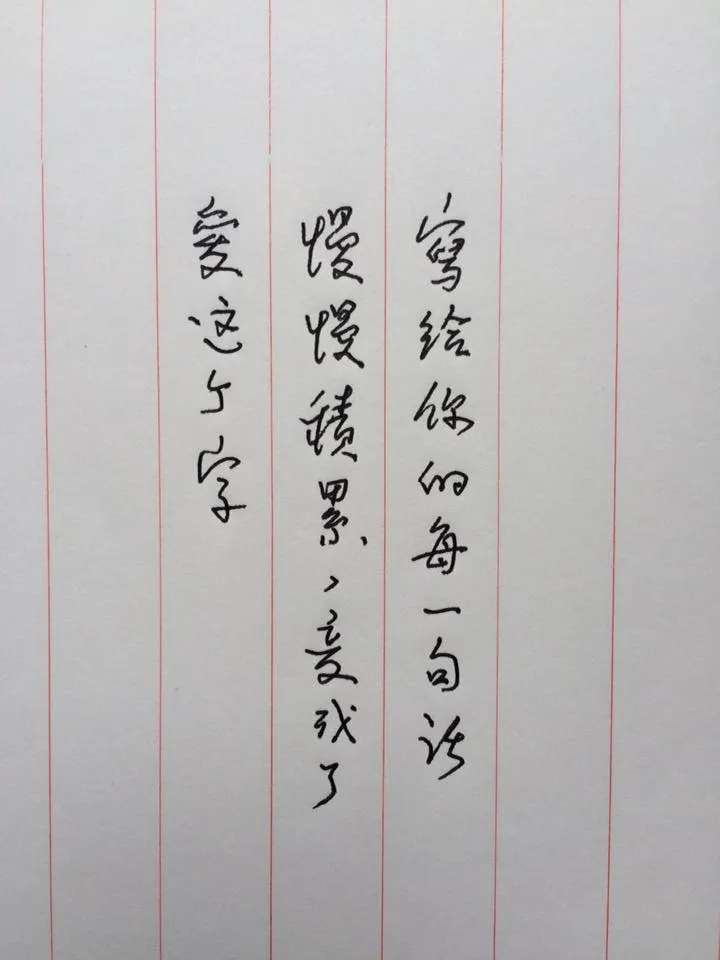 寫给你的每一句话
慢慢積累，变成了
爱这个字